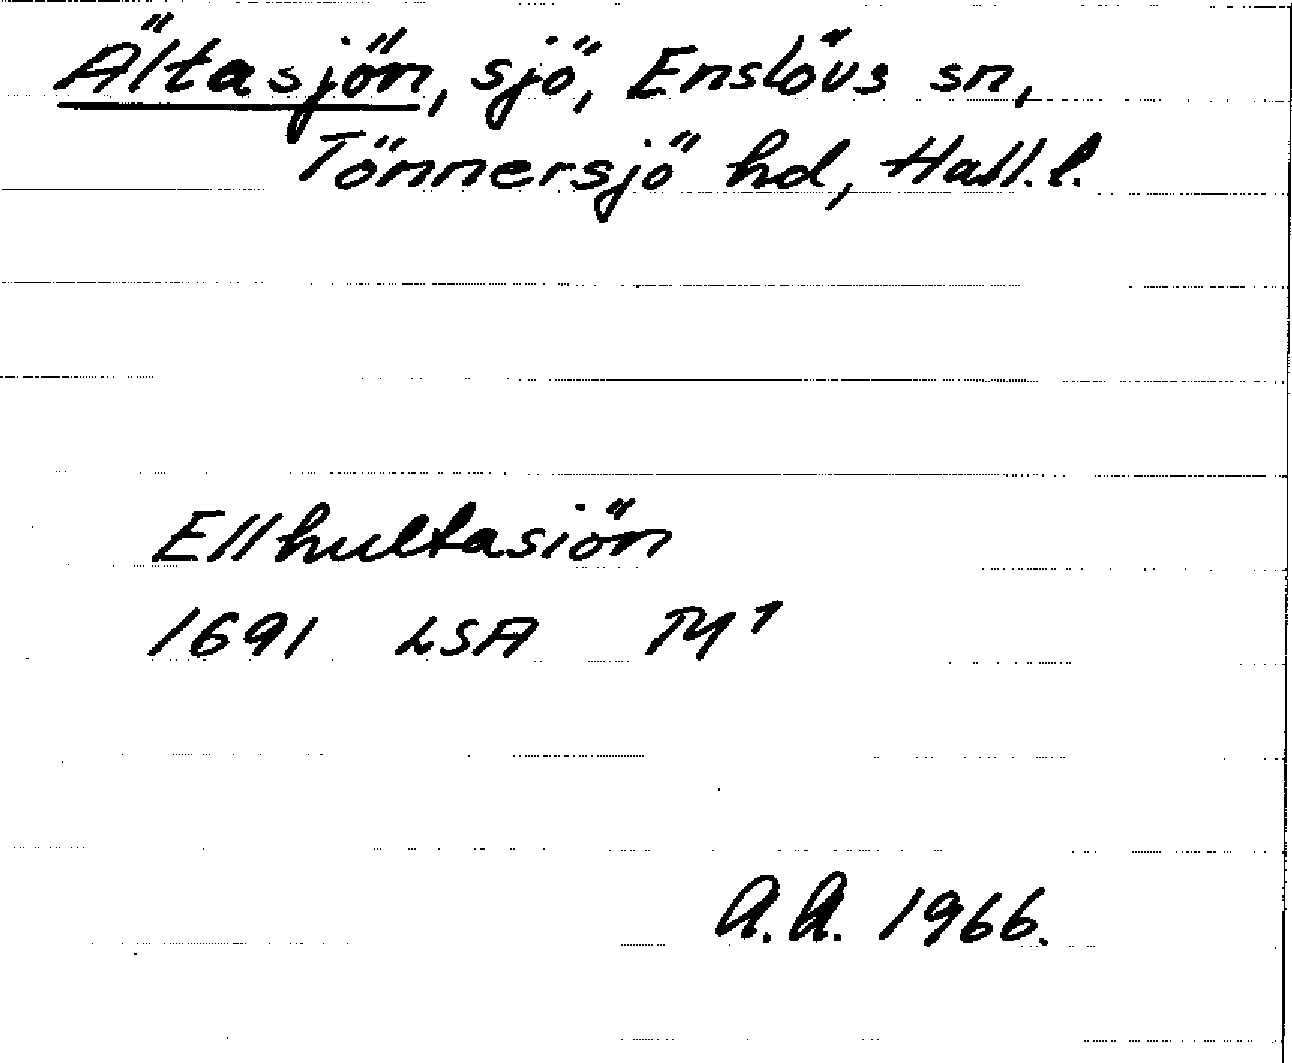 Ältasjön, sjö, Enslövs sn,
Tönnersjö hd, Hall.l.
Ellhultasiön
1691 LSA
A.A. 1966.